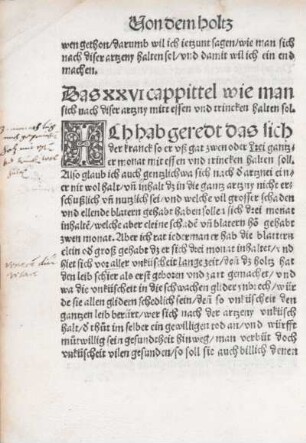 Von dem holtz
wen gethon/darumb wil ich ietzunt sagen/wie man sich
nach diser artzny halten sol/vnd damit wil ich ein end
machen.
Das XXVI cappittel wie man
sich nach diser artzny mitt essen vnd trincken halten sol.
ICh hab geredt das sich
der kranck so er vß gar zwen oder drei gantz-
er monat mit essen vnd trincken halten soll.
Also glaub ich auch gentzlich wa sich nach d artznei ein-
er nit wol halt/vñ inhalt dz in die gantz artzny nicht er-
schußlich vñ nutzlich sei/vnd welche vil grosser schaden
vnd ellende blatern gehabt haben solle sich drei monat
inhalte/welche aber cleine schadē vñ blatern hōt gehabt
zwen monat. Aber ich rat iederman er hab die blattern
clein od groß gehabt dz er sich drei monat inhaltet/vnd
hiet sich vor aller vnküscheit lange zeit/deñ dz holtz hat
den leib schier als erst geboren vnd zart gemachet/vnd
wa die vnküscheit in die schwachen glider inbrech/wür
de sie allen glidern schedlich sein/deñ so vnküscheit den
gantzen leib berürt/wer sich nach der artzny vnküsch
halt/d thůt im selber ein gewilligen tod an/vnd würfft
můtwillig sein gesundtheit hinweg/man verbüt doch
vnküscheit vilen gesunden/so soll sie auch billich denen